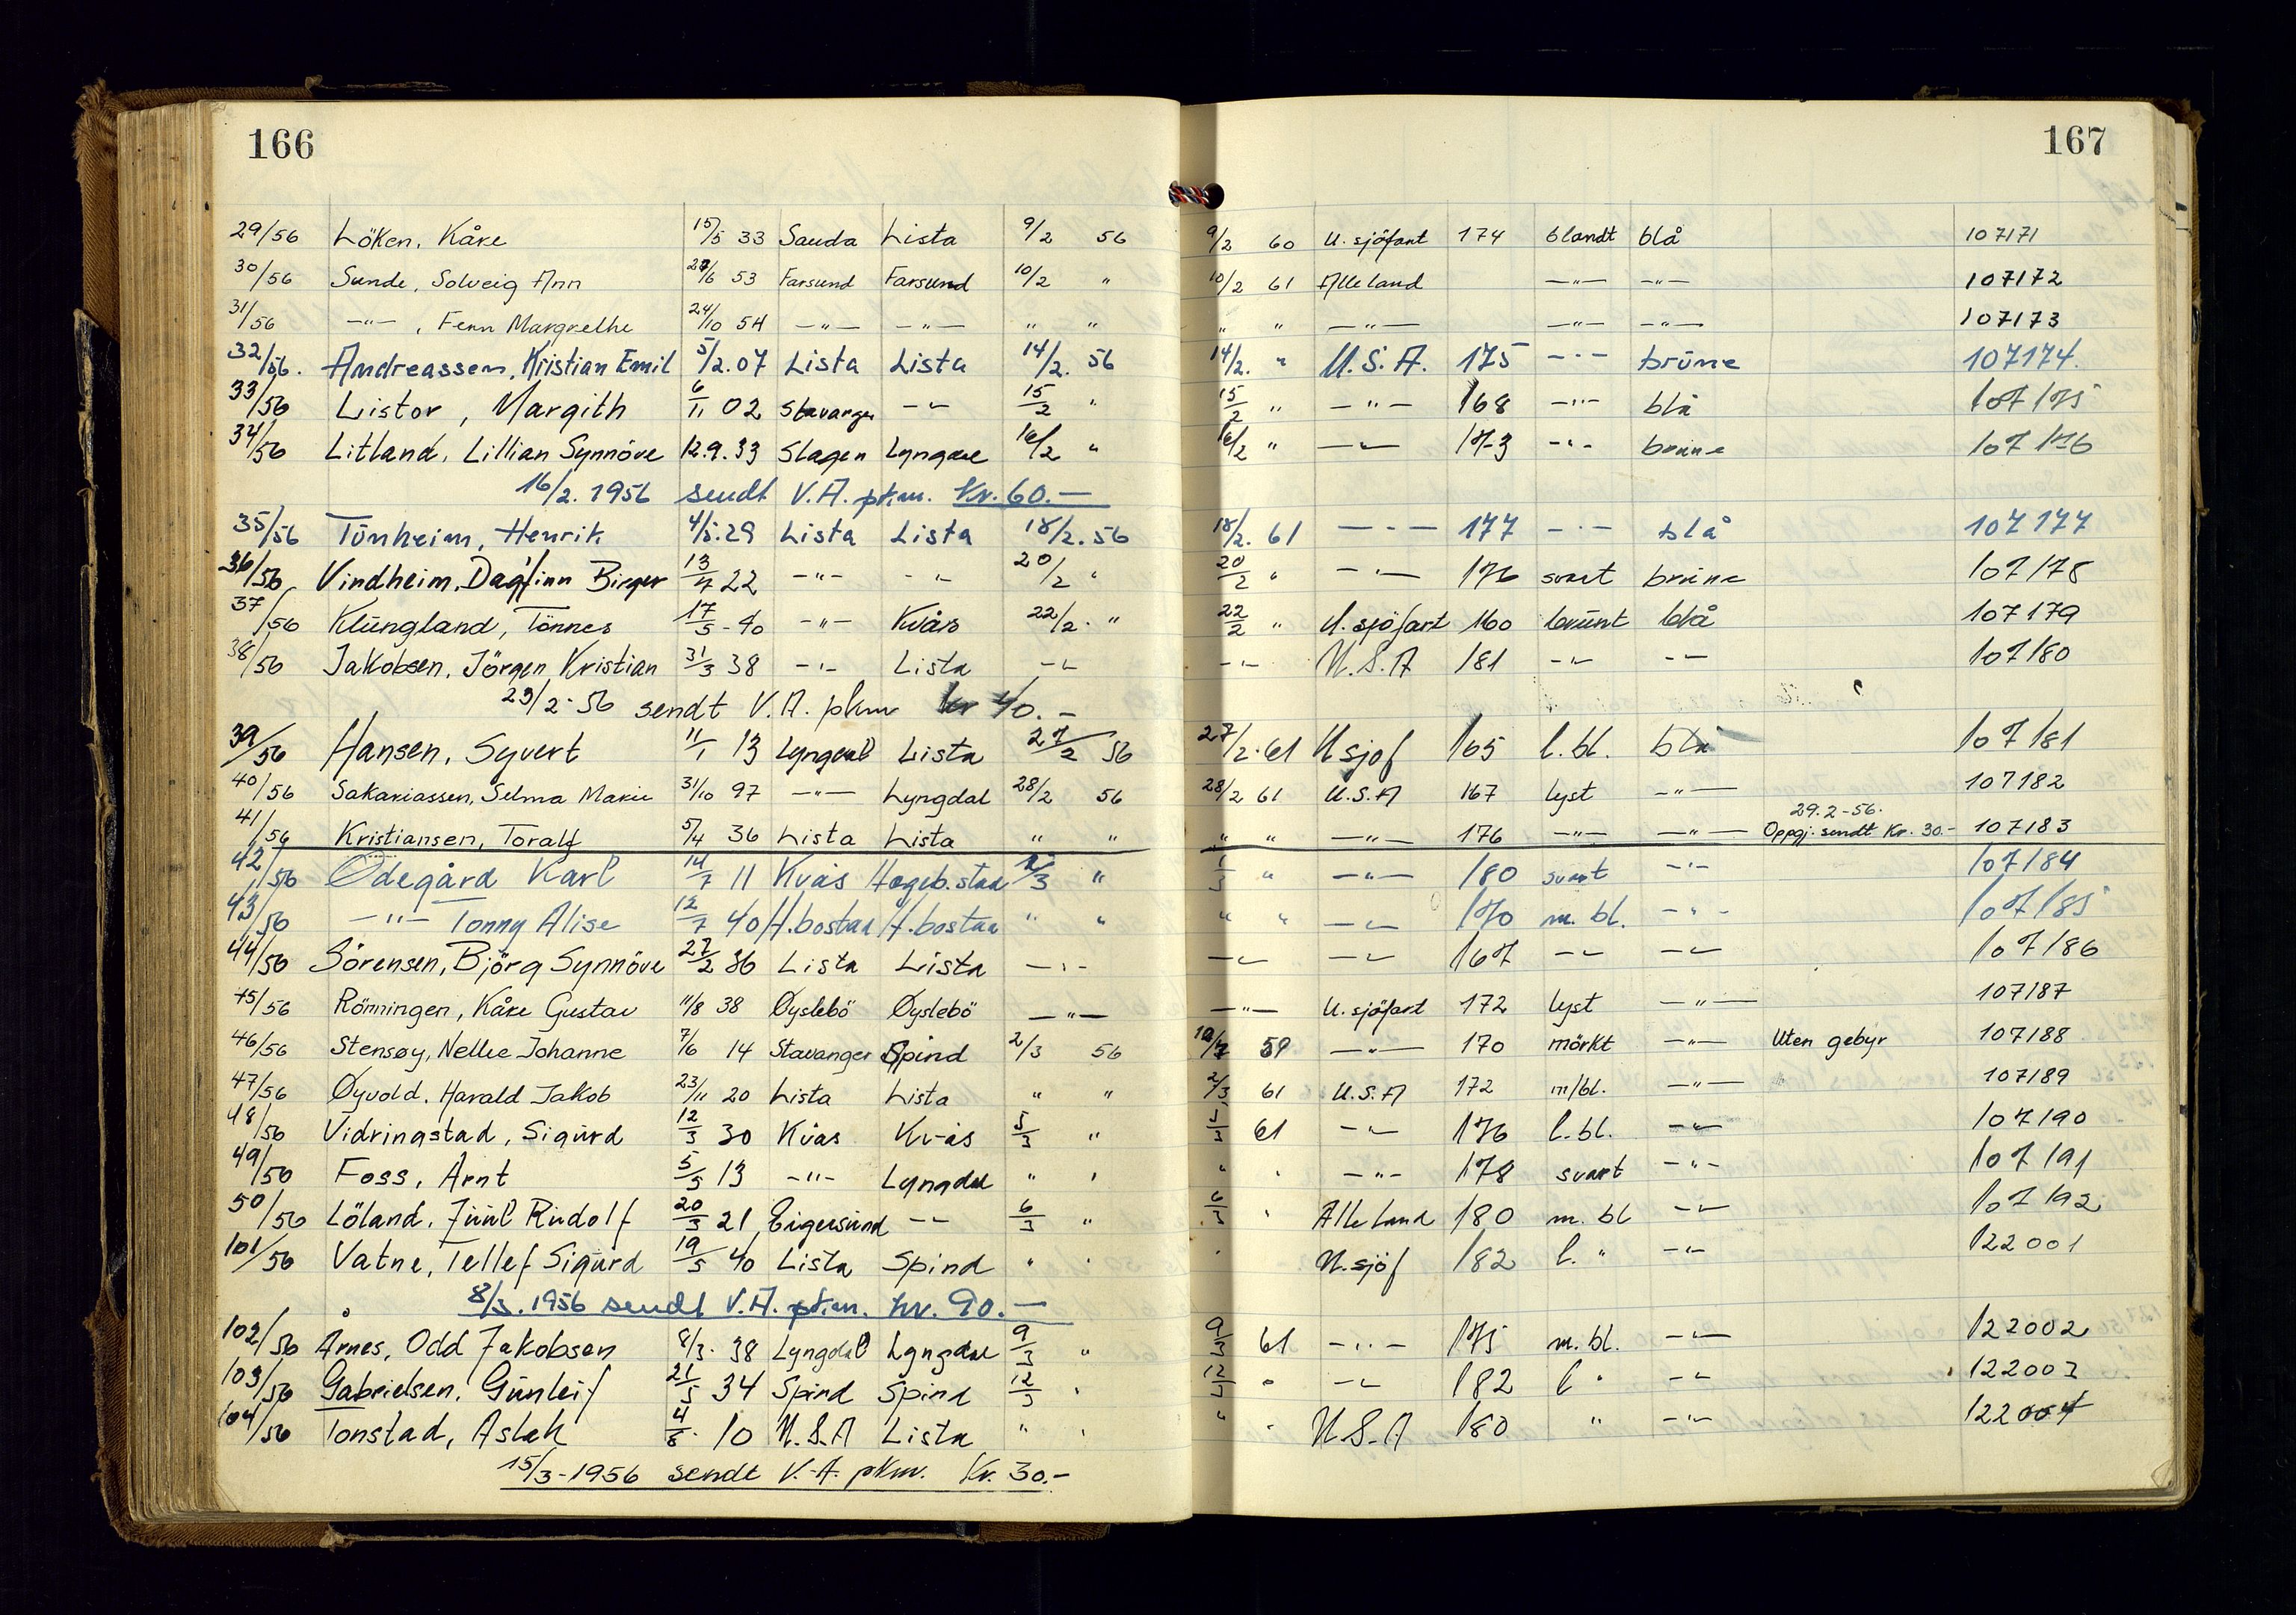 166
167
29/56 Löken, Kåre 15/5 33 Sauda Lista 9/2 56 9/2 60 U. sjöfart 174 blandt blå 107171
30/56 Sunde, Solveig Ann 27/6 53 Farsund Farsund 10/2 " 10/2 61 Alle land —"— —"— 107172
31/56 —"—, Fenn Margrethe 24/10 54 —"— —"— " " " " —"— —"— —"— 107173
32/56. Andreassen, Kristian Emil 5/2.07 Lista Lista 14/2. 56 14/2. " U.S.A. 175 —"— brune 107174.
33/56 Listor, Margith 6/11 02 Stavanger —"— 15/2 " 15/2 " —"— 168 —"— blå 107175
34/56 Litland, Lillian Synnöve 12.9.33 Slagen Lyngdal 16/2 " 16/2 " —"— 173 —"— brune 107176
16/2. 1956 sendt V.A. pkm. Kr. 60.—
35/56 Tunheim, Henrik 4/5.29 Lista Lista 18/2. 56 18/2. 61 —"— 177 —"— blå 107177
36/56 Vindheim, Dagfinn Birger 13/7 22 —"— —"— 20/2 " 20/2 " —"— 176 svart brune 107178
37/56 Klungland, Tönnes 17/5-40 —"— Kvås 22/2. " 22/2 " U. sjöfart 160 brunt blå 107179
38/56 Jakobsen, Jörgen Kristian 31/3 38 —"— Lista —"— —"— U.S.A 181 —"— —"— 107180
23/2-56 sendt V.A. pkm kr 40.—
39/56 Hansen, Syvert 11/1 13 Lyngdal Lista 27/2 56 27/2.61 U sjöf 165 l.bl. blå 107181
40/56 Sakariassen, Selma Marie 31/10 97 —"— Lyngdal 28/2 56 28/2 61 U.S.A 167 lyst —"— 107182
29.2-56.
41/56 Kristiansen, Toralf 5/4 36 Lista Lista " " " " —"— 176 —"— —"— Oppgj. sendt Kr. 30.- 107183
42/56 Ødegård Karl 14/7 11 Kvås Hægeb.stad 1/3 " 1/3 " —"— 180 svart —"— 107184
43/56 —"— Tonny Alise 12/7 40 H.bostad H.bostad " " " " —"— 170 m. bl. —"— 107185
44/56 Sörensen, Björg Synnöve 27/2 36 Lista Lista —"— —"— —"— 167 —"— —"— 107186
45/56 Rönningen, Kåre Gustav 11/8 38 Øyslebö Øyslebö —"— —"— U. sjöfart 172 lyst —"— 107187
46/56 Stensøy, Nellie Johanne 7/6 14 Stavanger Spind 2/3 56 59 —"— 170 mörkt —"— Uten gebyr 107188
47/56 Øyvold. Harald Jakob 23/11 20 Lista Lista " " 2/3 61 U.S.A 172 m/bl. —"— 107189
48/56 Vidringstad, Sigurd 12/3 30 Kvås Kvås 5/3 " 5/3 61 —"— 176 l.bl. —"— 107190
49/56 Foss, Arnt 5/5 13 —"— Lyngdal " " " " —"— 178 svart —"— 107191
50/56 Löland, Juul Rudolf 20/3 21 Eigersund —"— 6/3 " 6/3 " Alle land 180 m. bl —"— 107192
101/56 Vatne, Tellef Sigurd 19/5 40 Lista Spind " " " U.sjöf 182 l. " —"— 122001
8/3. 1956 sendt V.A. pkm. kr. 90.—
102/56 Årnes, Odd Jakobsen 8/3. 38 Lyngdal Lyngdal 9/3 " 9/3 61 —"— 175 m.bl. —"— 122002
103/56 Gabrielsen, Gunleif 21/5 34 Spind Spind 12/3 " 12/3 " —"— 182 l " —"— 122003
104/56 Tonstad, Aslak 4/8. 10 U.S.A Lista " " " " U.S.A 180 " —"— 122004
15/3-1956 sendt V.A. pkm. Kr. 30.-